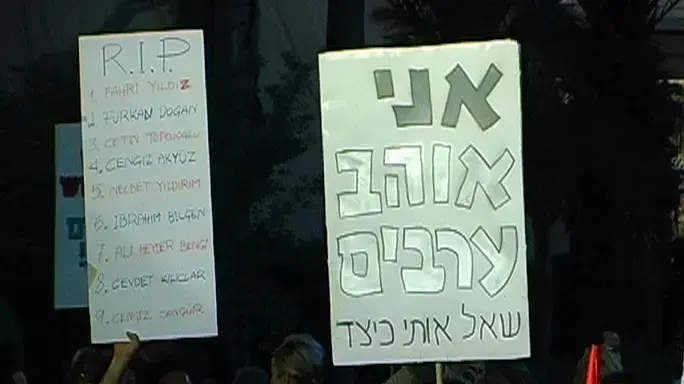 R.I.P
1. FAHRI YILDIZ
2. FURKAN DOGAN
3. CETIN TOPCUOGLU
4. CENGIZ AKYÜZ
5. NECDET YILDIRIM
6. IBRAHIM BILGEN
7. ALI HEYDER BENGI
8. CEVDET KILICLAR
9. CENGIZ SONGÜR
אני
אוהב
ערבים
שאל אותי כיצד